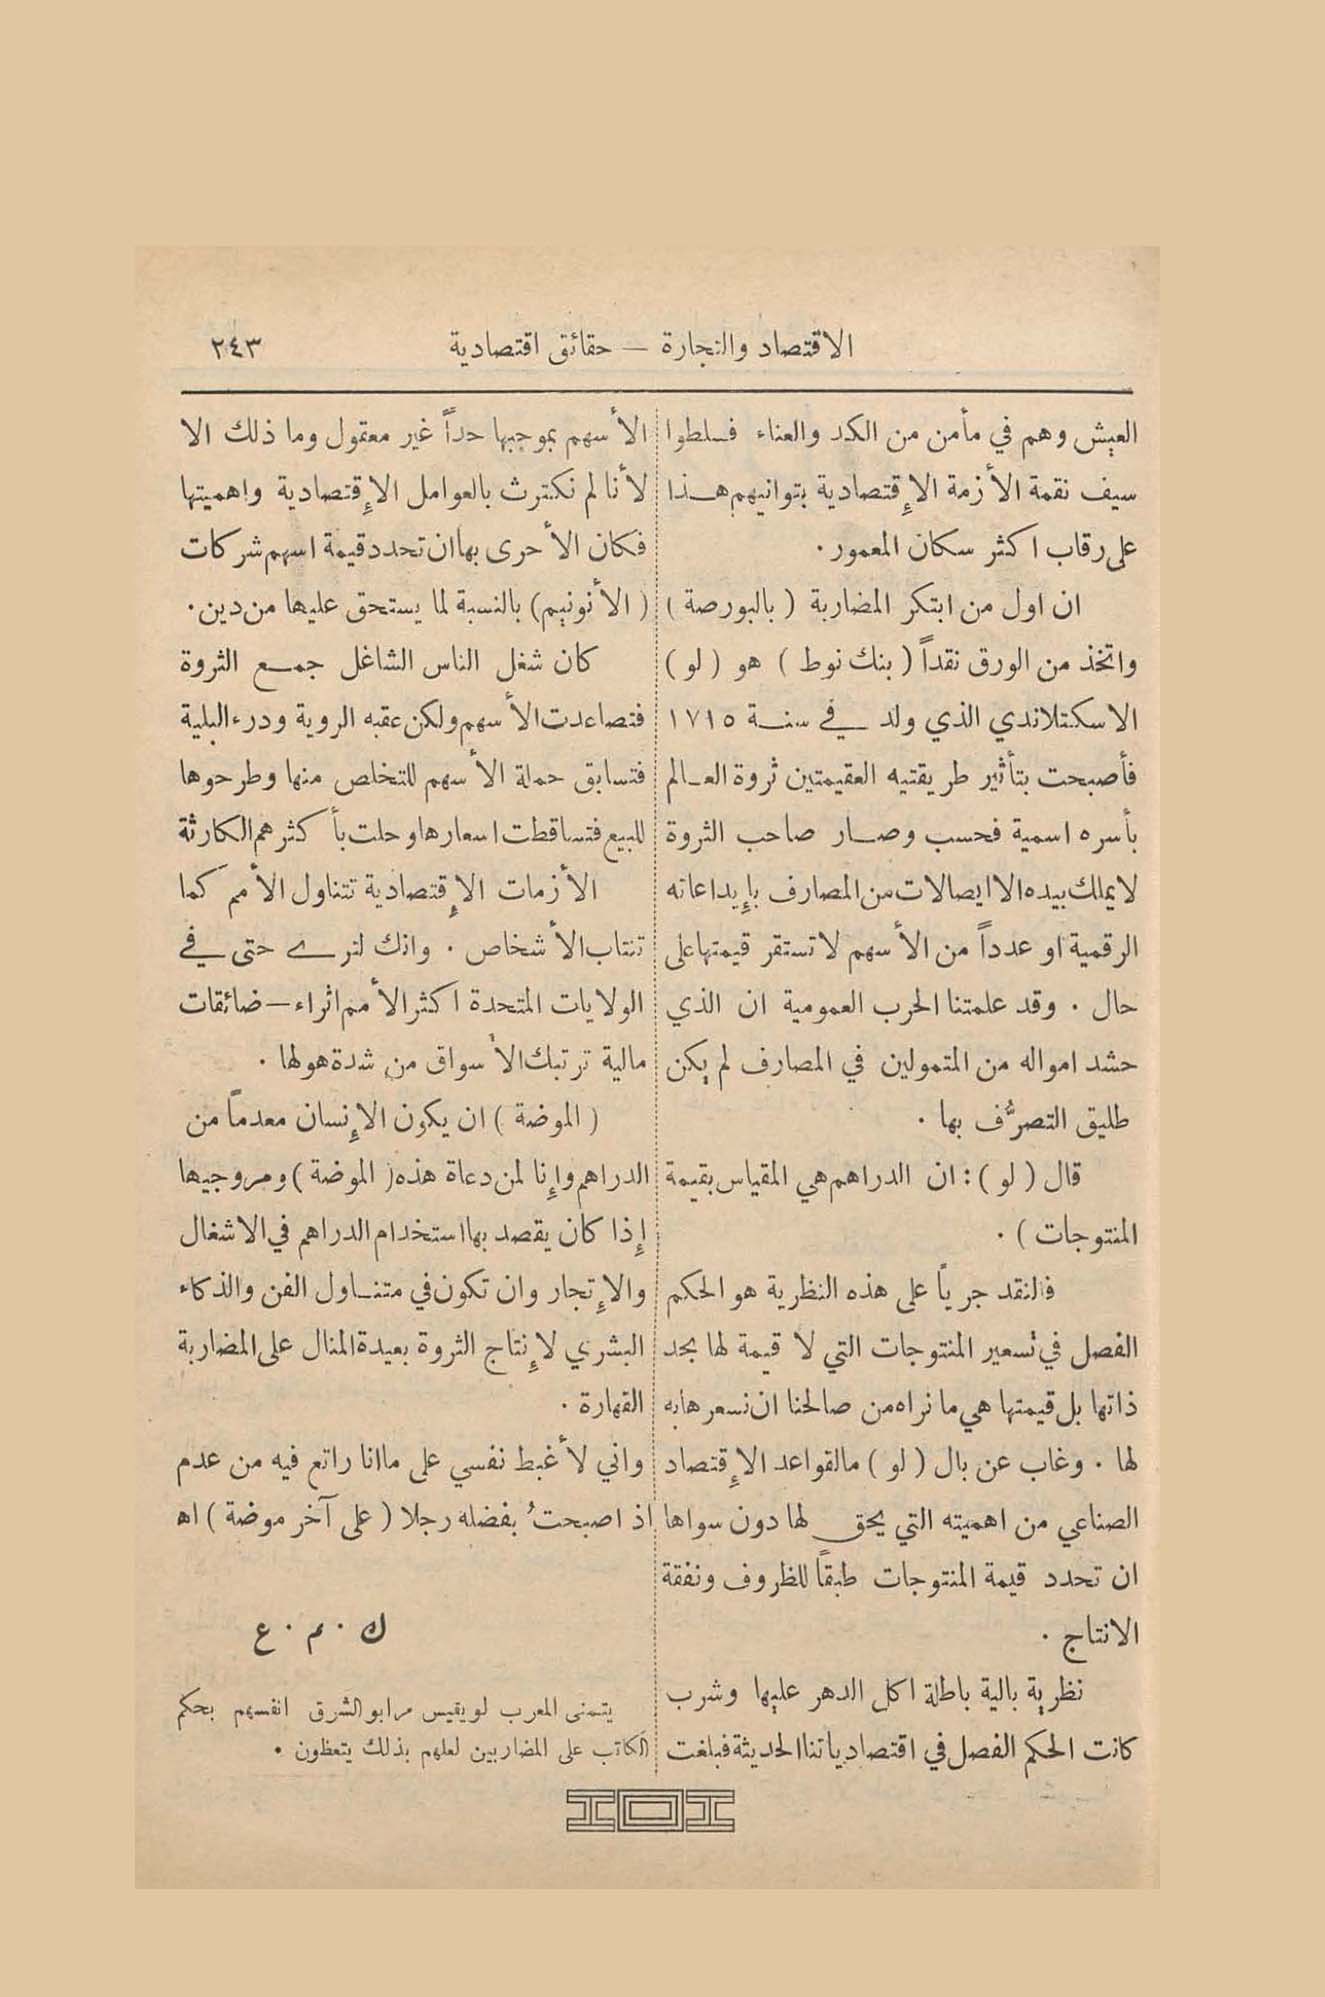 الاقتصاد والتجارة — حقائق اقتصادية ٢٤٣
العيش وهم في مأمن من الكد والعناء فسلطوا
سيف نقمة الأزمة الإقتصادية بتوانيهم هذا
على رقاب اكثر سكان المعمور .
ان اول من ابتكر المضاربة ( بالبورصة )
واتخذ من الورق نقداً ( بنك نوط ) هو ( لو )
الاسكتلاندي الذي ولد في سنة ١٧١٥
فأصبحت بتأثير طريقتيه العقيمتين ثروة العالم
بأسره اسمية فحسب وصار صاحب الثروة
لا يملك بيده الا ايصالات من المصارف بإيداعاته
الرقمية او عدداً من الأسهم لا تستقر قيمتها على
حال . وقد علمتنا الحرب العمومية ان الذي
حشد امواله من المتمولين في المصارف لم يكن
طليق التصرُّف بها .
قال ( لو ) : ان الدراهم هي المقياس بقيمة
المنتوجات ) .
فالنقد جرياً على هذه النظرية هو الحكم
الفصل في تسعير المنتوجات التي لا قيمة لها بحد
ذاتها بل قيمتها هي ما نراه من صالحنا ان نسعرها به
لها . وغاب عن بال ( لو ) ما لقواعد الإقتصاد
الصناعي من اهميته التي يحق لها دون سواها
ان تحدد قيمة المنتوجات طبقاً للظروف ونفقة
الانتاج .
نظرية بالية باطلة اكل الدهر عليها وشرب
كانت الحكم الفصل في اقتصادياتنا الحديثة فبلغت
الأسهم بموجبها حداً غير معقول وما ذلك الا
لأنا لم نكترث بالعوامل الإقتصادية واهميتها
فكان الأحرى بها ان تحدد قيمة اسهم شركات
( الأنونيم ) بالنسبة لما يستحق عليها من دين .
كان شغل الناس الشاغل جمع الثروة
فتصاعدت الأسهم ولكن عقبه الروية ودرء البلية
فتسابق حملة الأسهم للتخلص منها وطرحوها
للبيع فتساقطت اسعارها وحلت بأكثرهم الكارثة
الأزمات الإقتصادية تتناول الأمم كما
تنتاب الأشخاص . وانك لترے حتى في
الولايات المتحدة اكثر الأمم اثراء — ضائقات
مالية ترتبك الأسواق من شدة هولها .
( الموضة ) ان يكون الإنسان معدماً من
الدراهم وإنا لمن دعاة هذه ( الموضة ) ومروجيها
إذا كان يقصد بها استخدام الدراهم في الاشغال
والإتجار وان تكون في متناول الفن والذكاء
البشري لإنتاج الثروة بعيدة المنال على المضاربة
القهارة .
واني لأغبط نفسي على ما انا راتع فيه من عدم
اذ اصبحتُ بفضله رجلا ( على آخر موضة ) اه
ك . م . ع
يتمنى المعرب لو يقيس مرابو الشرق انفسهم بحكم
الكاتب على المضاربين لعلهم بذلك يتعظون .